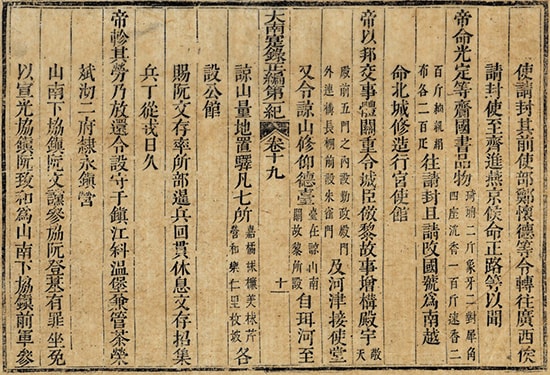 使請封其前使部鄭懷德等令轉往廣西俟
請封使至齎進燕京俟命正路等以聞
帝命光定等齎國書品物琦二斤象牙二對犀角四座沉香一百斤速香二
百斤紬紈絹布各二百疋往請封且請改國號爲南越
命北城修造行宮使館
帝以邦交事體關重令城臣倣黎故事增構殿宇敬天
殿前五門之內設勤政殿門外連構長棚前設朱雀門及河津接使堂
又令諒山修仰德臺臺在諒山南關故黎所設自珥河至
大南寔錄正編第一紀 卷十九 十一
諒山量地置驛凡七所嘉橘芙林芹營和樂仁里枚坡各
設公館
賜阮文存率所部還兵回貫休息文存招集
兵丁從戎日久
帝軫其勞乃放還令設守于鎮江科溫堡兼管茶榮
斌沏二府隸永鎮營
山南下協鎮阮文讓參協阮登基有罪坐免
以宣光協鎮阮玫和爲山南下協鎮前軍參